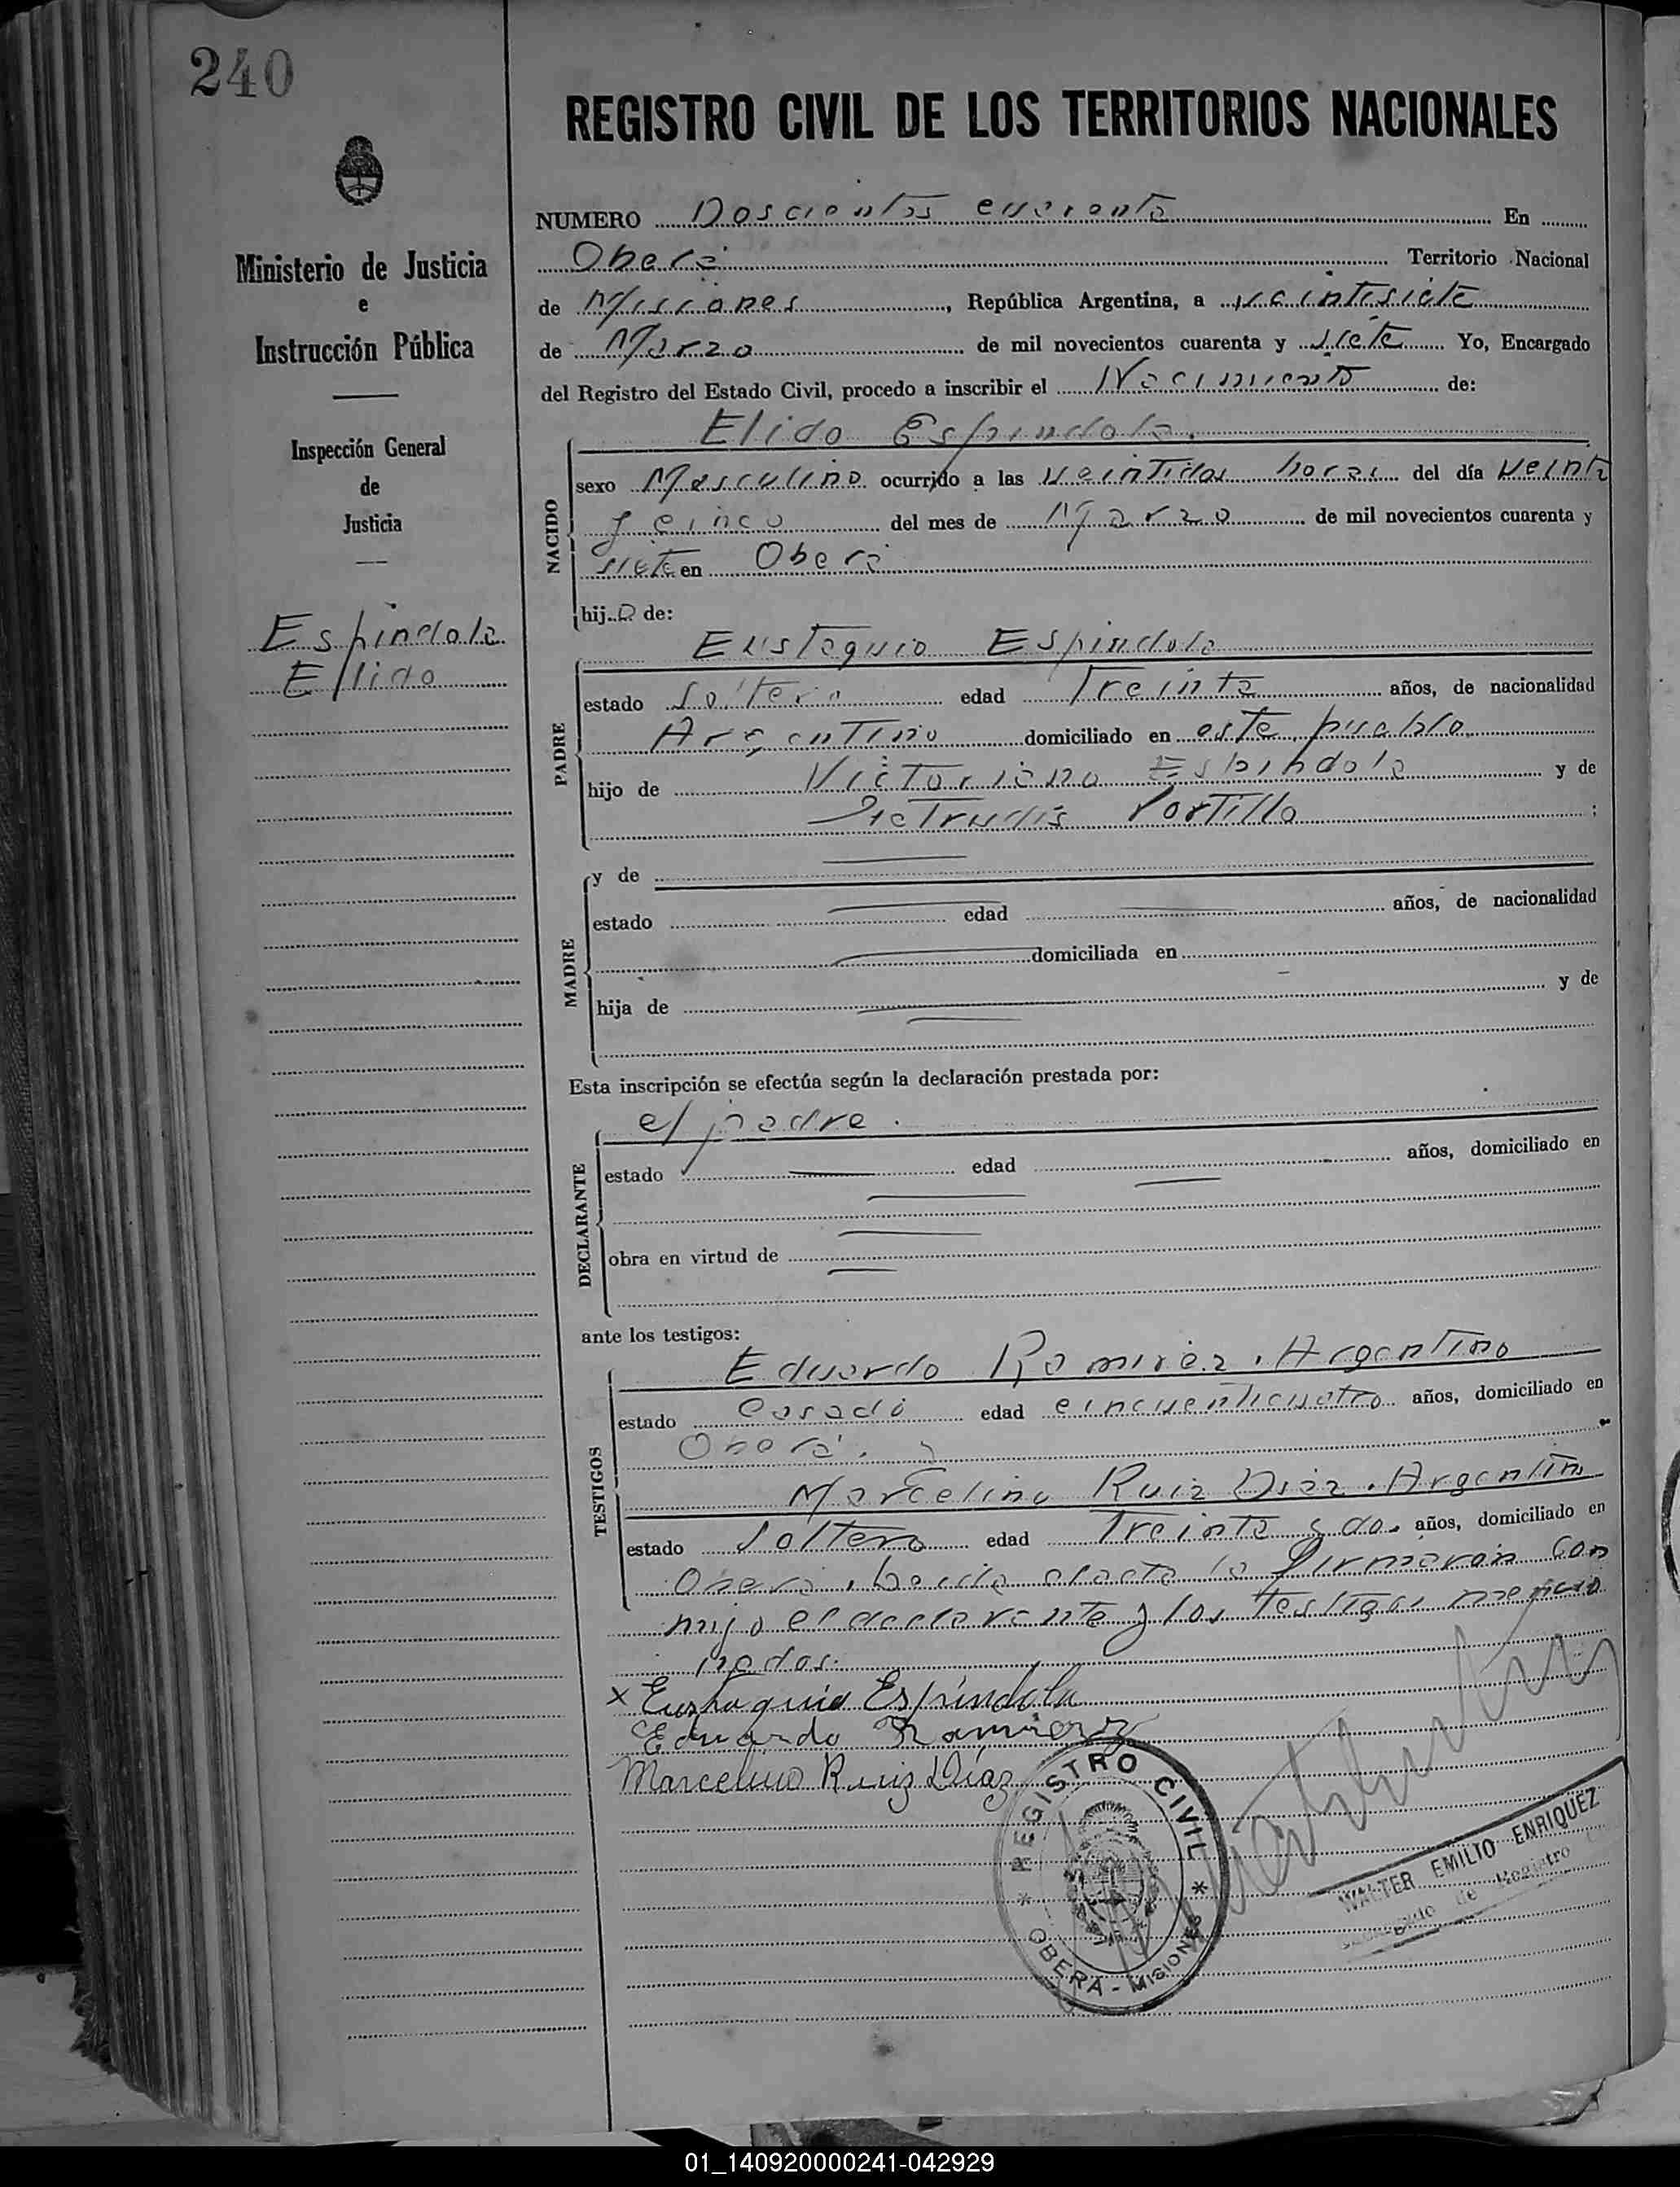 240
Ministerio de Justicia
e
Instrucción Pública
Inspección General
de
Justicia
Espindola
Elido
REGISTRO CIVIL DE LOS TERRITORIOS NACIONALES
NUMERO Doscientos cuarenta En
Oberá Territorio Nacional
de Misiones, República Argentina, a veintisiete
de Marzo de mil novecientos cuarenta y siete Yo, Encargado
del Registro del Estado Civil, procedo a inscribir el Nacimiento de:
Elido Espindola.
NACIDO
sexo Masculino ocurrido a las veintidos horas del día veinte
y cinco del mes de Marzo de mil novecientos cuarenta y
siete en Oberá
hijo de:
Eustaquio Espindola
PADRE
estado Soltero edad Treinta años, de nacionalidad
Argentino domiciliado en este pueblo
hijo de Victoriano Espindola y de
Portillo;
MADRE
y de
estado edad años, de nacionalidad
domiciliada en
hija de y de
Esta inscripción se efectúa según la declaración prestada por:
el padre.
DECLARANTE
estado edad años, domiciliado en
obra en virtud de
ante los testigos:
Eduardo Ramirez. Argentino
TESTIGOS
estado Casado edad cincuenticuatro años, domiciliado en
Oberá. y
Marcelino Ruiz Diaz. Argentino
estado Soltero edad Treinta y dos años, domiciliado en
Oberá. Leida el acta la firmaran con
migo el declarante y los testigos mencio
nados.
x Eustaquio Espíndola
Eduardo Ramirez
Marcelino Ruiz Díaz
REGISTRO CIVIL
* OBERÁ - MISIONES *
WALTER EMILIO ENRIQUEZ
de Registro
01_140920000241-042929